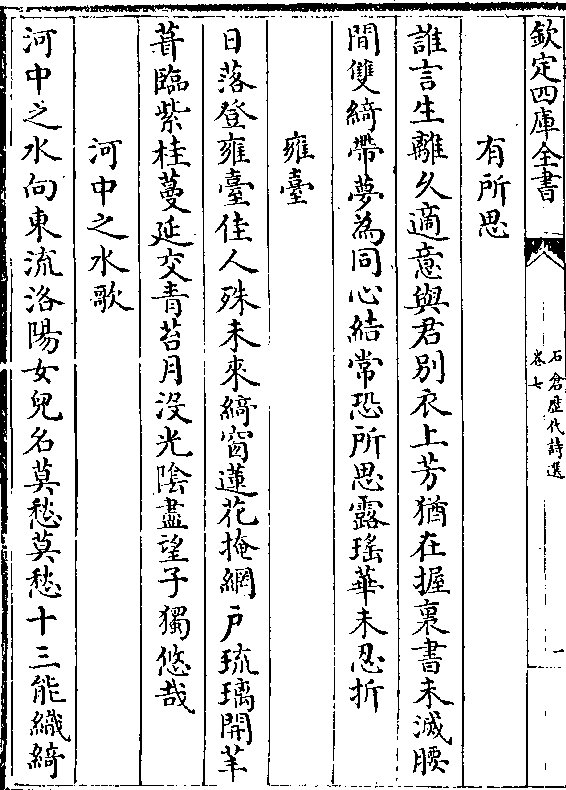 欽定四庫全書
石倉歴代詩選
卷七
一
有所思
誰言生離久適意與君别衣上芳猶在握裏書未滅腰
間雙綺帶夢為同心結常恐所思露瑤華未忍折
雍臺
日落登雍臺佳人殊未來綺窗蓮花掩網户琉璃開芊
葺臨紫桂蔓延交青苔月没光陰盡望子獨悠哉
河中之水歌
河中之水向東流洛陽女兒名莫愁莫愁十三能織綺